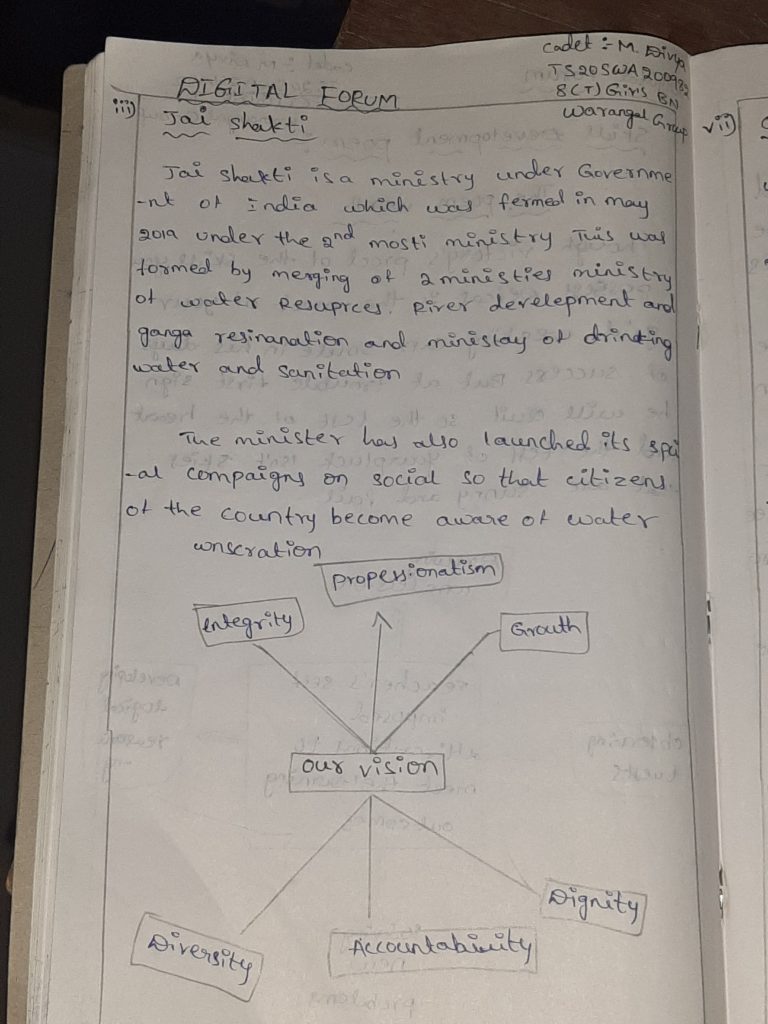 cadet :- M. Divya
TS20SWA2009
8(T) Girls BN
Warangal Group
DIGITAL FORUM
iii) Jai shakti
vii)
Jai shakti is a ministry under Governme
-nt of India which was fermed in may
2019 under the 2nd mosti ministry This was
formed by merging of 2 ministies ministry
of water Resuprces. River develepment and
ganga resinanation and ministay of drinking
water and sanitation
The minister has also launched its spi
-al compaigns on social so that citizens.
of the country become aware of water
wnscration
propessionatism
Integrity
Grouth
our vision
Dignity
Diversity
Accountability